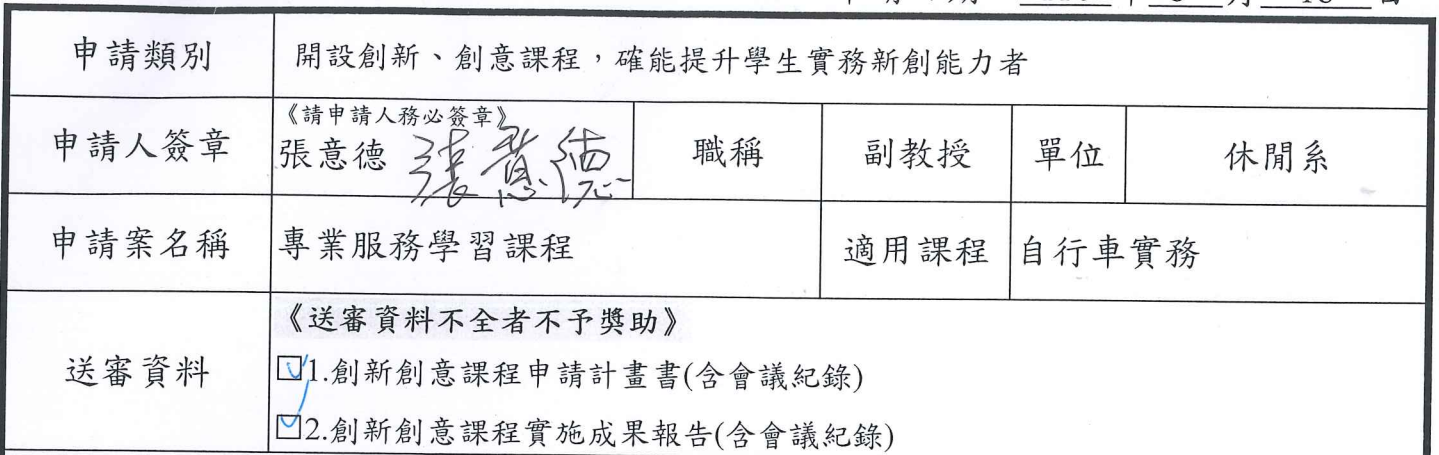 申請類別 開設創新、創意課程，確能提升學生實務新創能力者
《請申請人務必簽章》
申請人簽章 張意德 張意德 職稱 副教授 單位 休閒系
申請案名稱 專業服務學習課程 適用課程 自行車實務
《送審資料不全者不予獎助》
送審資料 ☑1.創新創意課程申請計畫書(含會議紀錄)
☑2.創新創意課程實施成果報告(含會議紀錄)